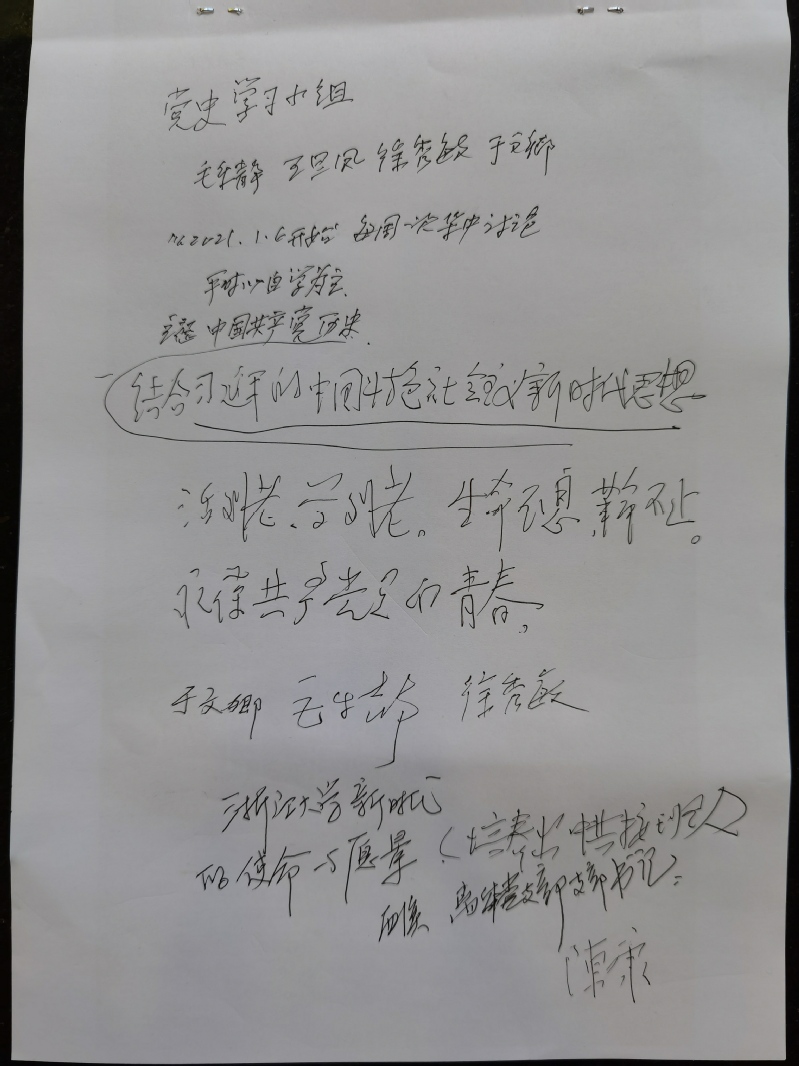 党史学习小组
毛车静 王旦凤 徐秀敏 于文卿
从2021.1.6开始 每周一次集中讨论
平时以自学为主
主题 中国共产党历史.
结合习近平的中国特色社会主义新时代思想
活到老、学到老。生命不息,革命不止。
永葆共产党员的青春,
于文卿 毛车静 徐秀敏
浙江大学新时代
的使命与愿景(培养出中共接班人)
离休党支部支部书记:
陈康